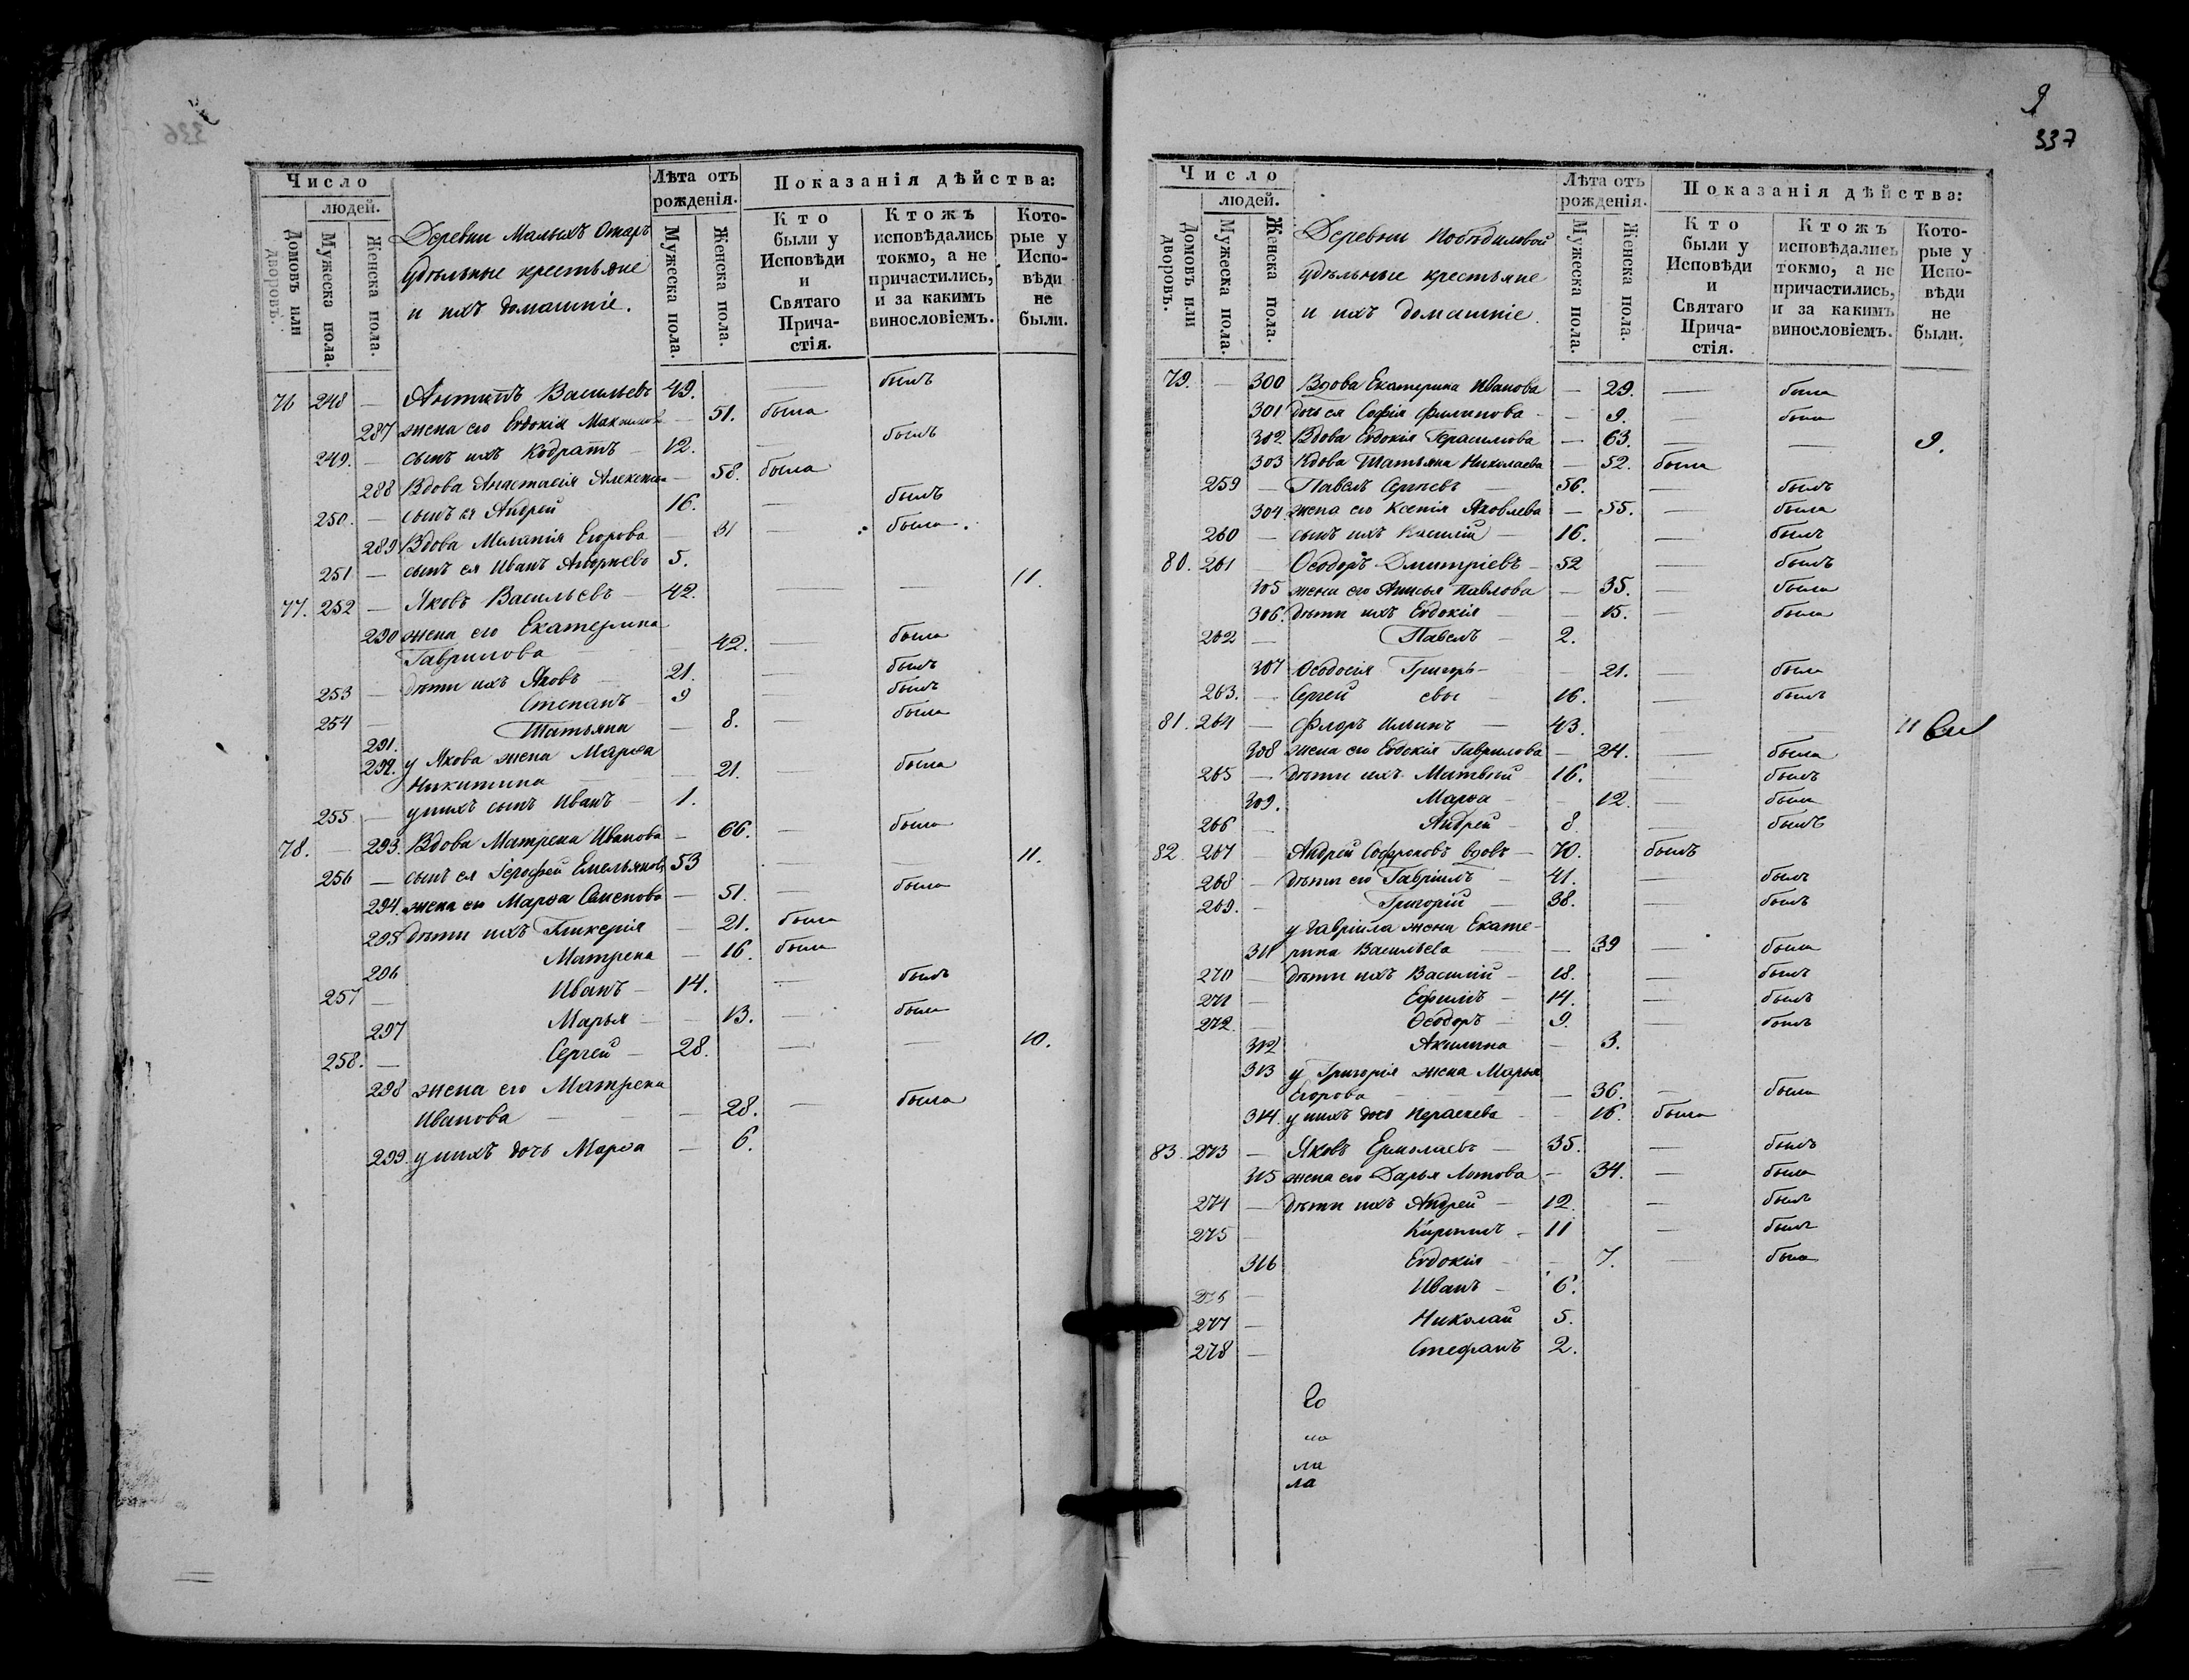 Число
людей.
Домовъ или дворовъ.
Мужеска пола.
Женска пола.
Деревни Малыхъ Отаръ
удѣльные крестьяне
и ихъ домашніе.
Лѣта отъ рожденія.
Мужеска пола.
Женска пола.
Показанія дѣйства:
Кто были у Исповѣди и Святаго Прича-стія.
Ктожъ исповѣдались токмо, а не причастились, и за какимъ винословіемъ.
Кото-рые у Испо-вѣди не были.
76 248 — Антипъ Васильевъ 49. — былъ
287 жена его Евдокія Максимов — 51. была
249. — сынъ ихъ Кодратъ — 12. — былъ
288 Вдова Анастасія Алексѣев — 58. была
250. — сынъ ея Андрей 16. — былъ
289 Вдова Меланія Егорова — 31 — была.
251 — сынъ ея Иванъ 5.
77. 252 — Яковъ Васильевъ — 42. — — 11.
290 жена его Екатерина
Гаврилова — 42. — была
253 — дѣти ихъ Яковъ — 21. — былъ
254 — Степанъ — 9 — былъ
291. Татьяна — 8. — была
292. у Якова жена Марѳа
Никитина — 21. — была
255 — у нихъ сынъ Иванъ — 1.
78. — 293. Вдова Матрена Иванова — 66. — была
256 — сынъ ея Іерофей Емельяновъ 53 — — 11.
294. жена его Марѳа Семенова — 51. — была
295 дѣти ихъ Гликерія — 21. была
296 Матрена — 16. была
257 — Иванъ — 14. — былъ
297 Марья — 13. — была
258. — Сергей — 28. — — 10.
298 жена его Матрена
Иванова — 28. — была
299. у нихъ дочь Марѳа — 6.
337
Число
людей.
Домовъ или дворовъ.
Мужеска пола.
Женска пола.
Деревни Побѣдиловой
удѣльные крестьяне
и ихъ домашніе.
Лѣта отъ рожденія.
Мужеска пола.
Женска пола.
Показанія дѣйства:
Кто были у Исповѣди и Святаго Прича-стія.
Ктожъ исповѣдались токмо, а не причастились, и за какимъ винословіемъ.
Кото-рые у Испо-вѣди не были.
79. — 300 Вдова Екатерина Иванова — 29. — была
301 дочь ея Софія Филипова — 9. — была
302 Вдова Евдокія Герасимова — 63. — — 9.
303 Вдова Татьяна Николаева — 52. была
259 — Павелъ Сергѣевъ — 56. — былъ
304. жена его Ксенія Яковлева — 55. — была
260 — сынъ ихъ Василій — 16. — былъ
80. 261 Ѳеодоръ Дмитріевъ — 52 — былъ
305 жена его Анисья Павлова — 35. — была
306. дѣти ихъ Евдокія — 15. — была
262 — Павелъ — 2.
307 Ѳеодосія Григорь- — 21. — была
263. — Сергей евы — 16. — былъ
81. 264 — Флоръ Ильинъ — 43. — — 11
308 жена его Евдокія Гаврилова — 24. — была
265 — дѣти ихъ Матвѣй — 16. — былъ
309. Марѳа — 12. — была
266 — Андрей — 8. — былъ
82. 267 — Андрей Софроновъ вдовъ — 70. былъ
268 — дѣти его Гавріилъ — 41. — былъ
269. — Григорій — 38. — былъ
у Гавріила жена Екате-
311 рина Васильева — 39 — была
270 — дѣти ихъ Василій — 18. — былъ
271 — Ефимъ — 14. — былъ
272. — Ѳеодоръ — 9. — былъ
312 Акилина — 3.
313 у Григорія жена Марья
Егорова — 36. — была
314. у нихъ дочь Параскева — 16. была
83. 273 — Яковъ Ермолаевъ — 35. — былъ
315 жена его Дарья Лотова — 34. — была
274 — дѣти ихъ Андрей — 12. — былъ
275 — Кирилъ — 11 — былъ
316 Евдокія — 7. — была
276 — Иванъ — 6.
277 — Николай 5.
278 — Стефанъ 2.
ла
ла